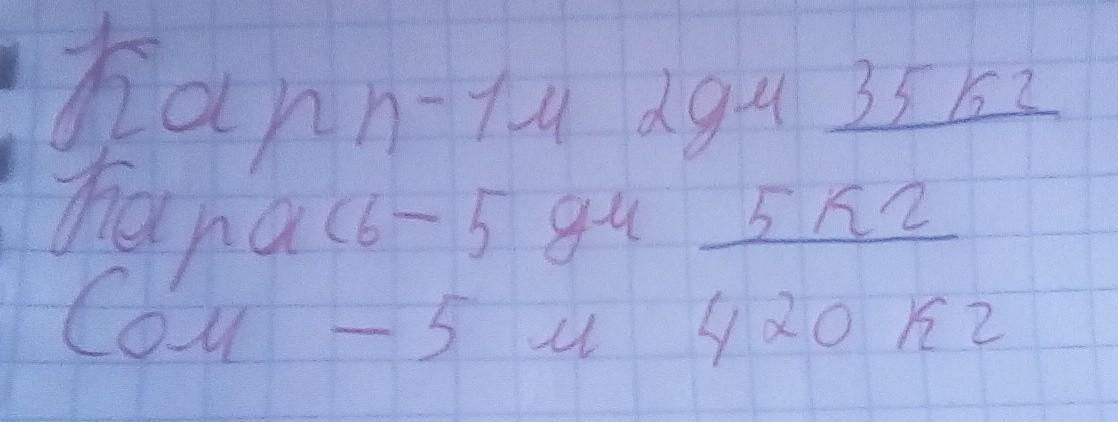 Карп - 1м 2дм 35 кг
Карась - 5 дм 5 кг
Сом - 5 м 420 кг